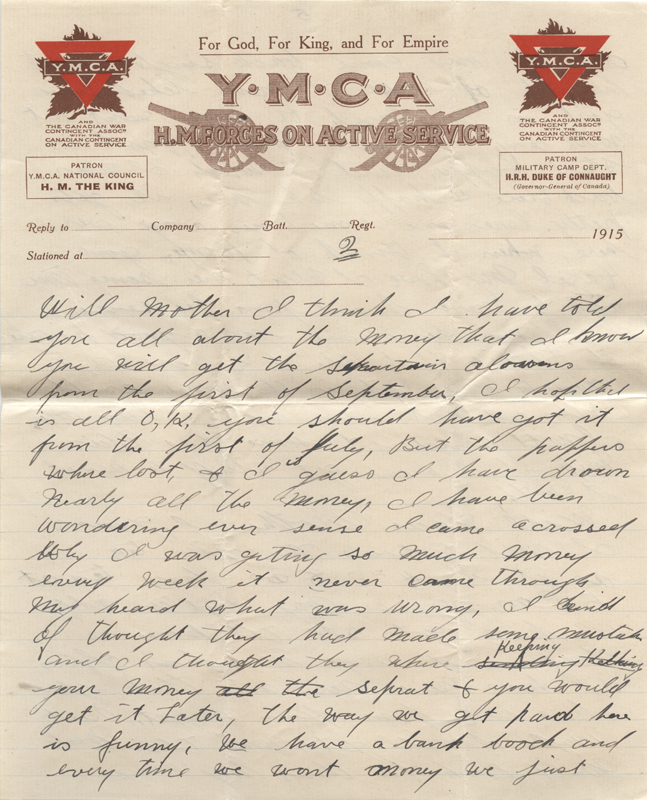 For God, For King, and For Empire
Y·M·C·A
H.M. FORCES ON ACTIVE SERVICE
Y.M.C.A.
AND
THE CANADIAN WAR
CONTINGENT ASSOCN
WITH THE
CANADIAN CONTINGENT
ON ACTIVE SERVICE
PATRON
Y.M.C.A. NATIONAL COUNCIL
H. M. THE KING
Y.M.C.A.
AND
THE CANADIAN WAR
CONTINGENT ASSOCN
WITH THE
CANADIAN CONTINGENT
ON ACTIVE SERVICE
PATRON
MILITARY CAMP DEPT.
H.R.H. DUKE OF CONNAUGHT
(Governor-General of Canada)
Reply to Company Batt. Regt.
1915
Stationed at
2
Will Mother I think I have told
you all about the Money that I know
you will get the alowens
from the first of September, I hop that
is all O,K, you should have got it
from the first of July, But the pappers
where lost, & I guess I have drown
nearly all the Money, I have been
wondering ever sense I came acrossed
Why I was geting so much money
every week it never came through
my heard what was wrong, I kind
of thought they had made some mustake
and I thought they where sending Keeping
your money all the seprat & you would
get it Later, The way we get paid here
is funny, We have a bank boock and
every time we wont money we just